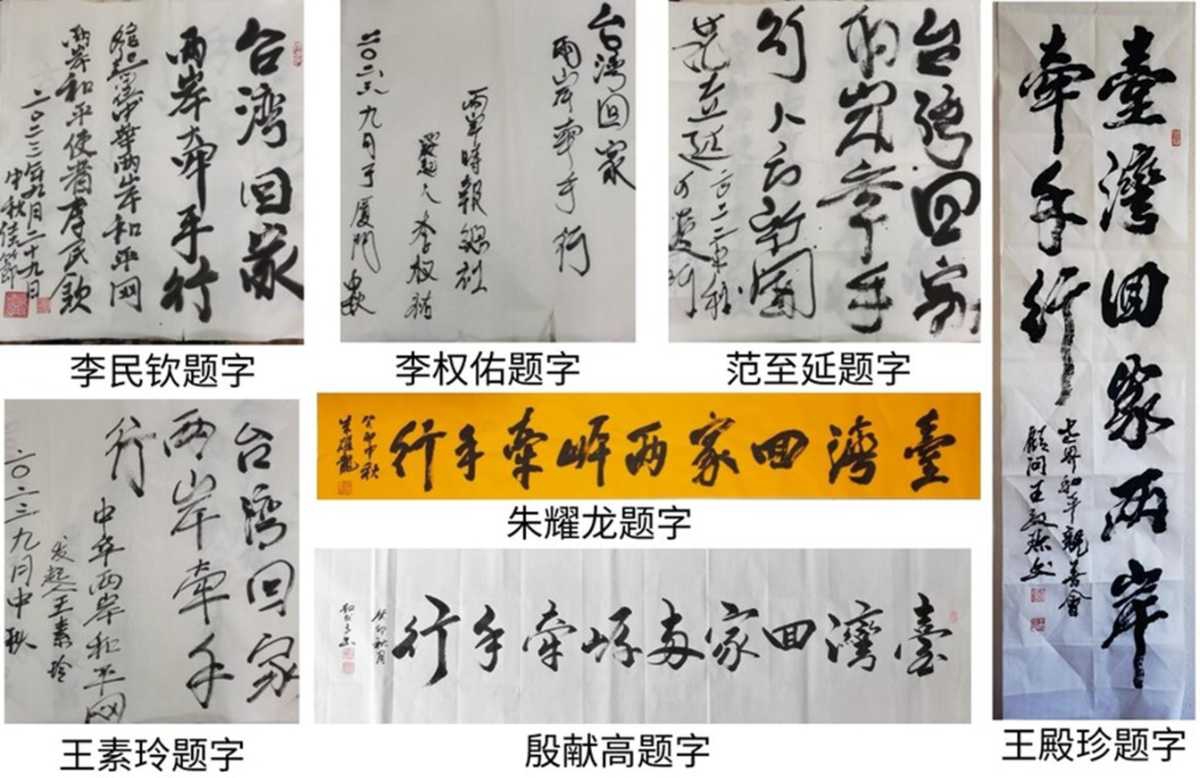 台湾回家
两岸牵手行
中华两岸和平网
两岸和平使者李民钦
二〇二三年九月二十九日
中秋佳節
李民钦题字
台湾回家
兩岸牵手行
两岸時報總社
李权祐
二〇二三九月于厦門
李权佑题字
台湾回家
两岸牵手
行
范至延题字
臺灣回家两岸
牵手行
世界和平親善會
顧問王殿珍
王殿珍题字
台湾回家
两岸牵手
行
中华两岸和平网
发起人王素玲
二〇二三九月中秋
王素玲题字
臺灣回家两岸牽手行
癸卯中秋
朱耀龍
朱耀龙题字
臺灣回家两岸牽手行
殷献高题字